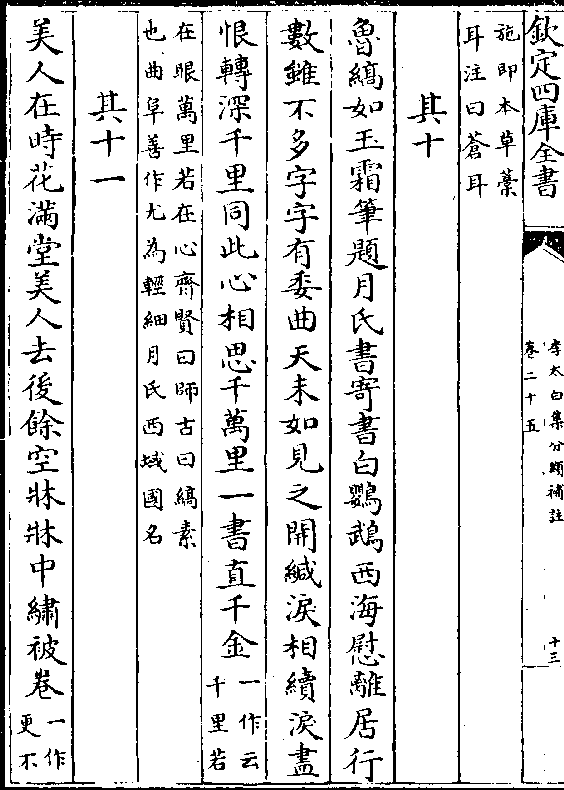 欽定四庫全書
李太白集分類補註
卷二十五
十三
施即本草藁
耳注曰蒼耳
其十
魯縞如玉霜筆題月氏書寄書白鸚鵡西海慰離居行
數雖不多字字有委曲天末如見之開緘淚相續淚盡
恨轉深千里同此心相思千萬里一書直千金一作云
千里若
在眼萬里若在心齊賢曰師古曰縞素
也曲阜善作尤為輕細月氏西域國名
其十一
美人在時花滿堂美人去後餘空牀牀中繡被卷一作
更不